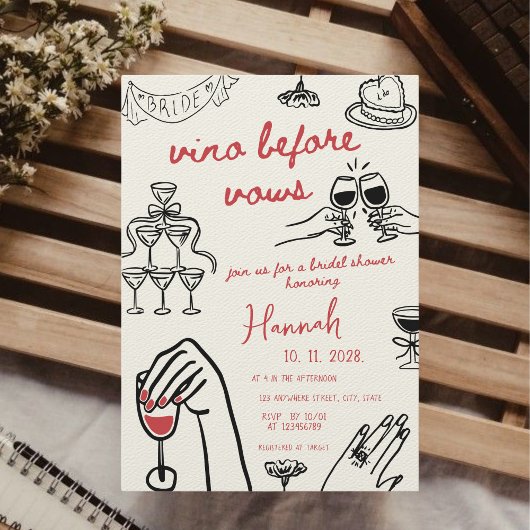 BRIDE
I do
vino before
vows
join us for a bridel shower
honoring
Hannah
10. 11. 2028.
AT 4 IN THE AFTERNOON
123 ANYWHERE STREET, CITY, STATE
RSVP BY 10/01
AT 123456789
REGISTERED AT TARGET